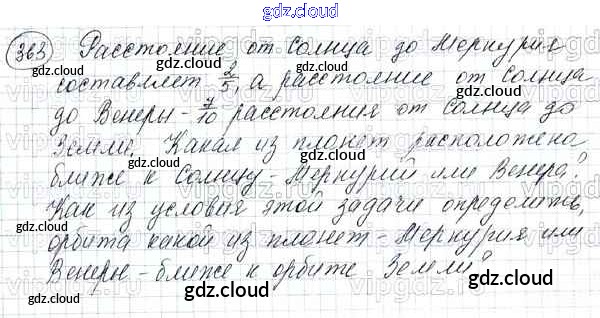 gdz.cloud
363 Расстояние от Солнца до Меркурия
составляет 2/5, а расстояние от Солнца
до Венеры - 7/10 расстояния от Солнца до
Земли. Какая из планет расположена
ближе к Солнцу - Меркурий или Венера?
Как из условия этой задачи определить,
орбита какой из планет - Меркурия или
Венеры - ближе к орбите Земли?
gdz.cloud